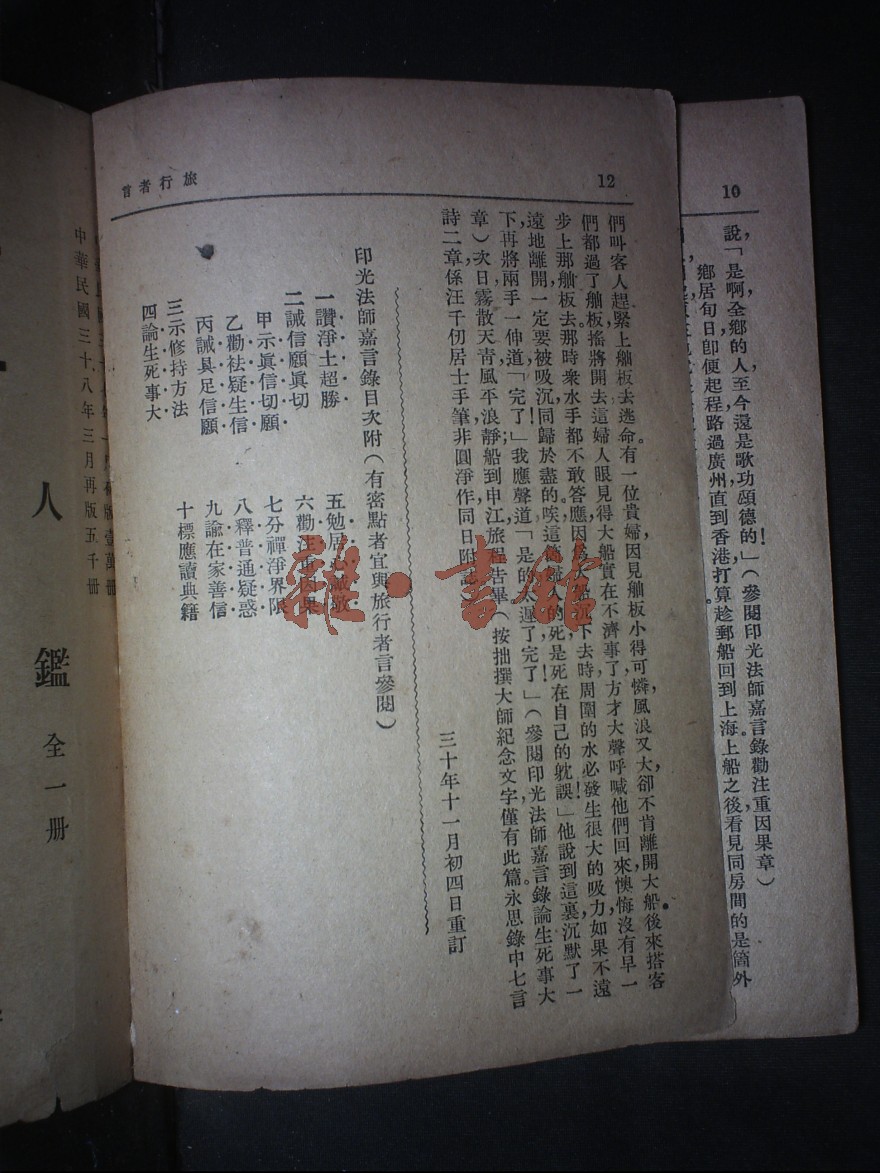 10
說，「是啊，全鄉的人，至今還是歌功頌德的！」（參閱印光法師嘉言錄勸注重因果章）
鄉居旬日，卽便起程，路過廣州，直到香港，打算趁郵船回到上海。上船之後，看見同房間的是箇外
旅行者言
12
們叫客人趕緊上舢板去逃命。有一位貴婦，因見舢板小得可憐，風浪又大，卻不肯離開大船。後來搭客
們都過了舢板，搖將開去，這婦人眼見得大船實在不濟事了，方才大聲呼喊他們回來，懊悔沒有早一
步上那舢板去。那時衆水手都不敢答應，因爲大船沉下去時，周圍的水必發生很大的吸力，如果不遠
遠地離開，一定要被吸沉，同歸於盡的。唉！這箇婦人的死，是死在自己的躭誤！」他說到這裏，沉默了一
下，再將兩手一伸道，「完了！」我應聲道，「是的，太遲了，完了！」（參閱印光法師嘉言錄論生死事大
章）次日，霧散天青，風平浪靜，船到申江，旅程告畢。（按拙撰大師紀念文字，僅有此篇。永思錄中七言
詩二章，係汪千仞居士手筆，非圓淨作。同日附記）
三十年十一月初四日重訂
印光法師嘉言錄目次附（有密點者宜與旅行者言參閱）
一讚淨土超勝
二誡信願眞切
甲示眞信切願
乙勸祛疑生信
丙誡具足信願
三示修持方法
四論生死事大
五勉居心誠敬
六勸注重因果
七分禪淨界限
八釋普通疑惑
九諭在家善信
十標應讀典籍
中華民國三十八年三月再版五千册
人鑑 全一册
雜·書館